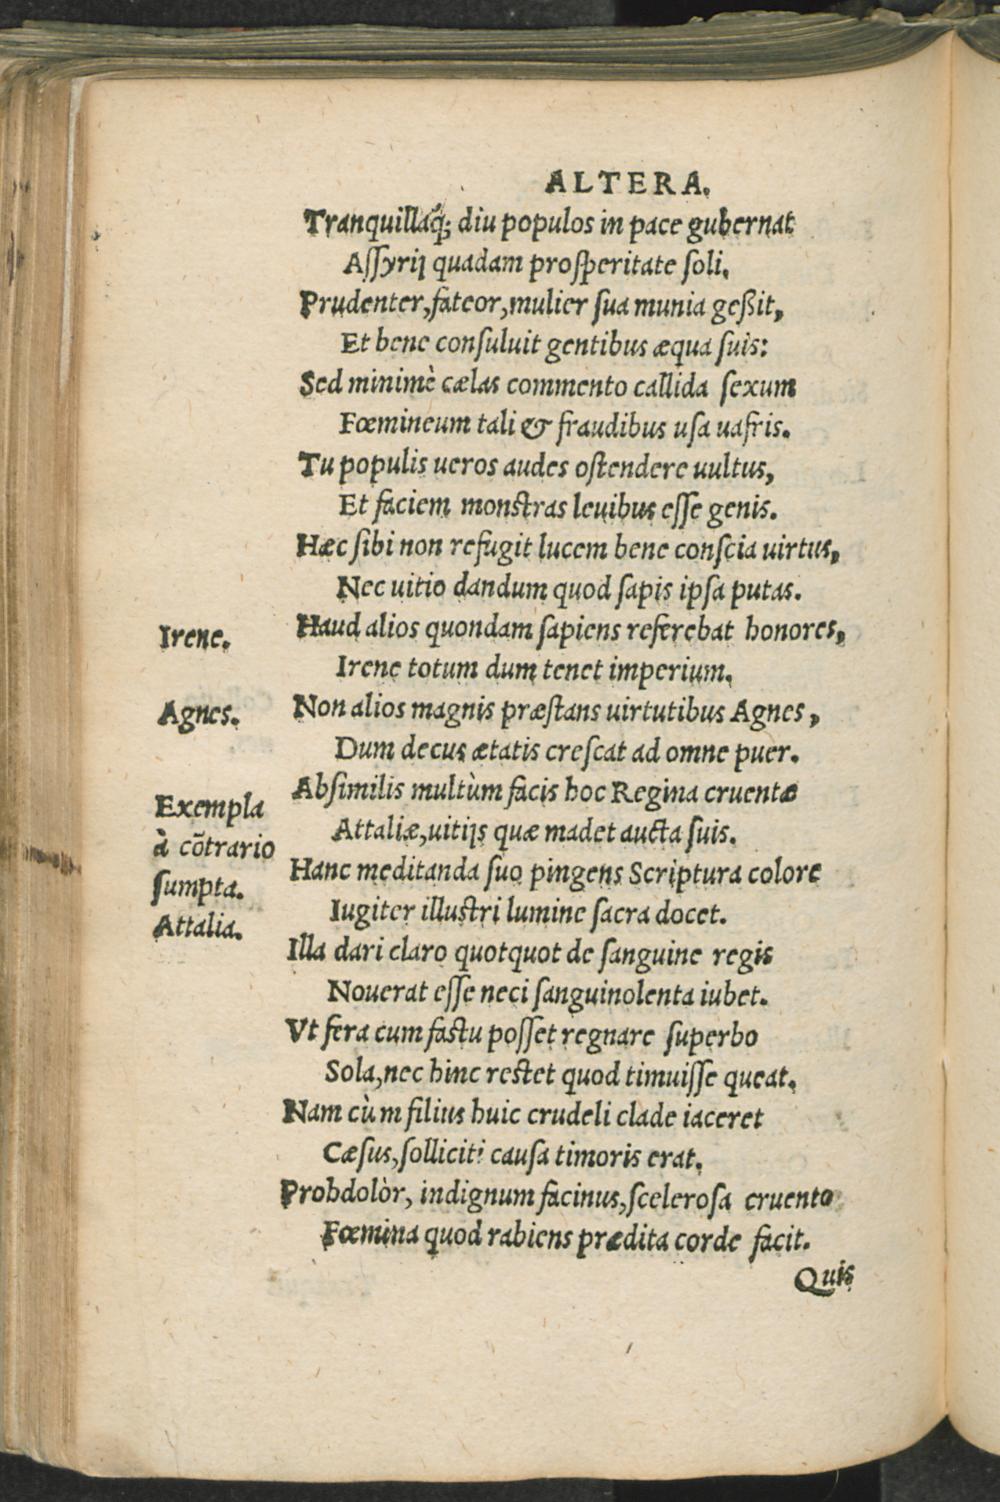 ALTERA.
Tranquillaq́; diu populos in pace gubernat
Aſſyrij quadam proſperitate ſoli.
Prudenter, fateor, mulier ſua munia geßit,
Et bene conſuluit gentibus æqua ſuis:
Sed minimè cælas commento callida ſexum
Fœmineum tali & fraudibus uſa uafris.
Tu populis ueros audes oſtendere uultus,
Et faciem monſtras leuibus eſſe genis.
Hæc ſibi non refugit lucem bene conſcia uirtus,
Nec uitio dandum quod ſapis ipſa putas.
Irene.
Haud alios quondam ſapiens referebat honores,
Irene totum dum tenet imperium.
Agnes.
Non alios magnis præſtans uirtutibus Agnes,
Dum decus ætatis creſcat ad omne puer.
Exempla
à cõtrario
ſumpta.
Attalia.
Abſimilis multùm facis hoc Regina cruentæ
Attaliæ, uitijs quæ madet aucta ſuis.
Hanc meditanda ſuo pingens Scriptura colore
Iugiter illuſtri lumine ſacra docet.
Illa dari claro quotquot de ſanguine regis
Nouerat eſſe neci ſanguinolenta iubet.
Vt fera cum faſtu poſſet regnare ſuperbo
Sola, nec hinc reſtet quod timuiſſe queat.
Nam cùm filius huic crudeli clade iaceret
Cæſus, ſolliciti cauſa timoris erat.
Prohdolòr, indignum facinus, ſceleroſa cruento
Fœmina quod rabiens prædita corde facit.
Quis